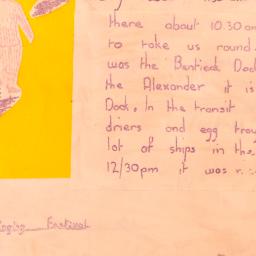 there about 10.30 am
to take us round.
was the Bentick Dock
the Alexander it is
Dock. In the transit
driers and egg
lot of ships in the
12/30pm it was